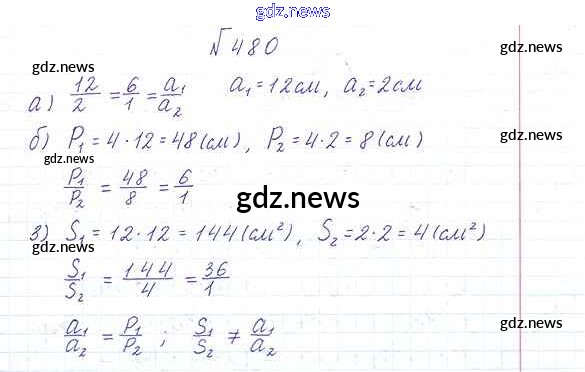 gdz.news
№480
gdz.news
gdz.news
а) 12/2 = 6/1 = a₁/a₂ a₁ = 12см, a₂ = 2см
б) P₁ = 4 · 12 = 48 (см), P₂ = 4 · 2 = 8 (см)
gdz.news
gdz.news
P₁/P₂ = 48/8 = 6/1
gdz.news
gdz.news
3) S₁ = 12 · 12 = 144 (см²), S₂ = 2 · 2 = 4 (см²)
gdz.news
S₁/S₂ = 144/4 = 36/1
a₁/a₂ = P₁/P₂ ; S₁/S₂ ≠ a₁/a₂
gdz.news
gdz.news